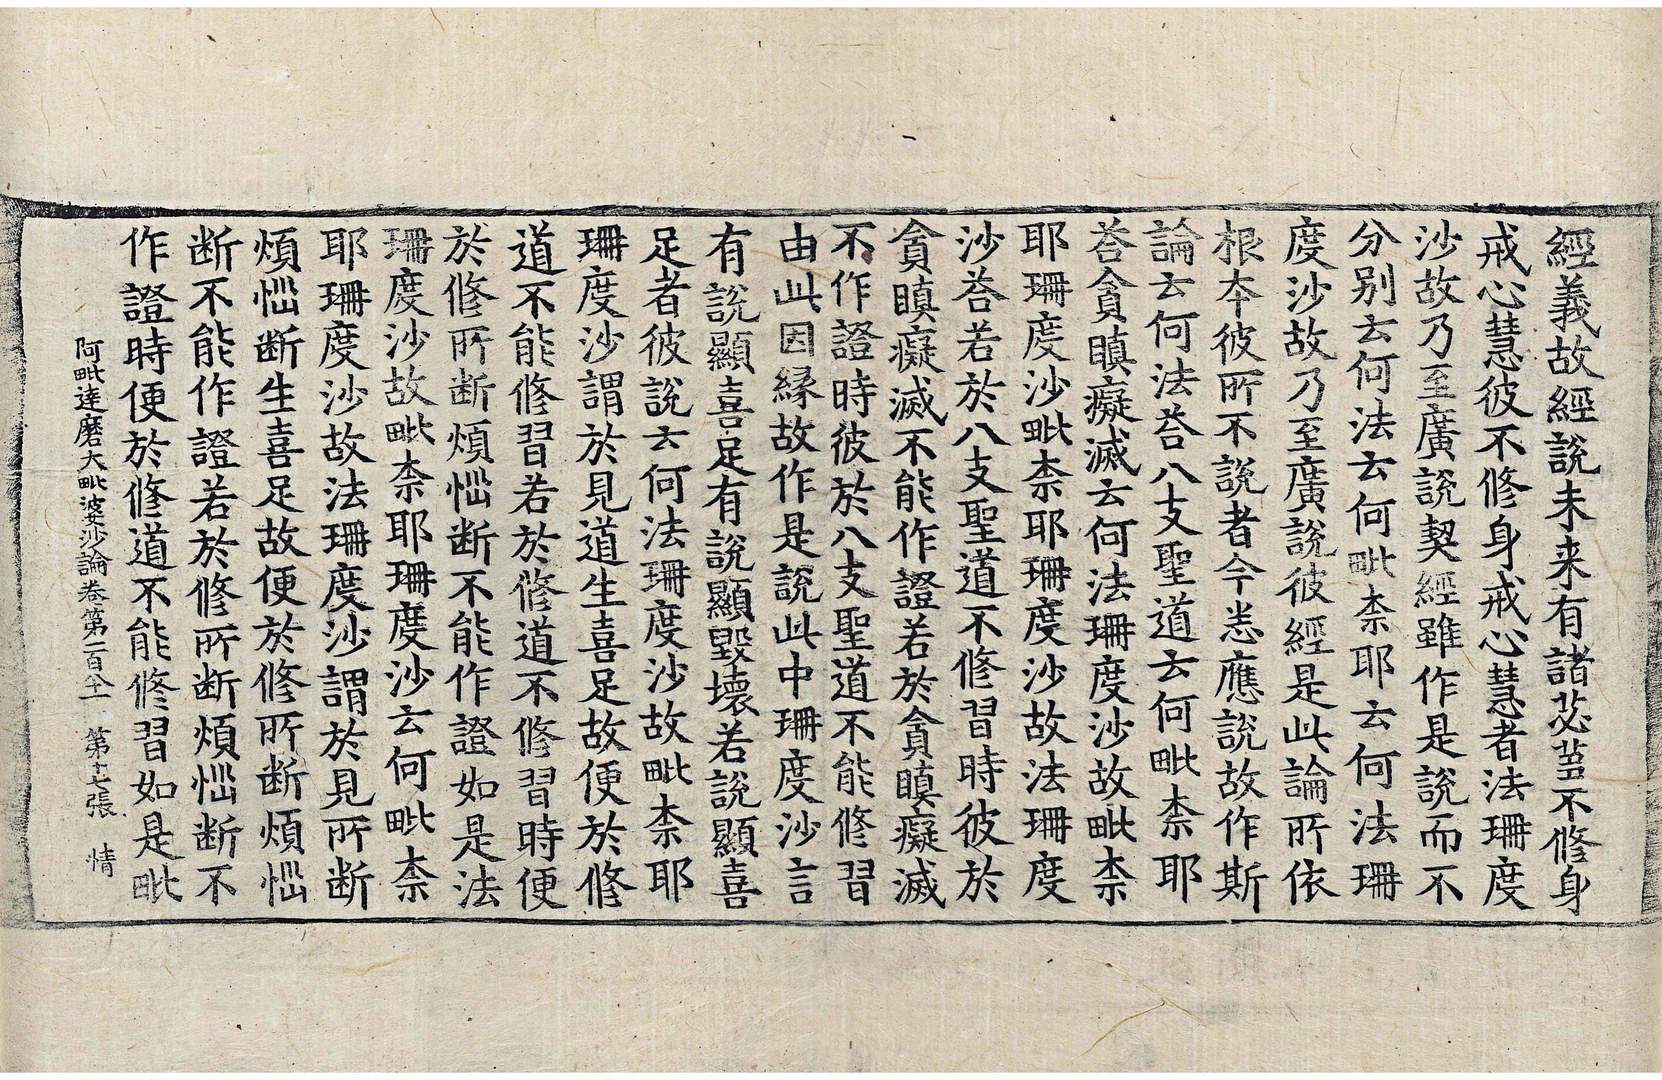 經義故經說未来有諸苾蒭不修身
戒心慧彼不修身戒心慧者法珊度
沙故乃至廣說契經雖作是說而不
分别云何法云何毗柰耶云何法珊
度沙故乃至廣說彼經是此論所依
根本彼所不說者今悉應說故作斯
論云何法荅八支聖道云何毗柰耶
荅貪瞋癡滅云何法珊度沙故毗柰
耶珊度沙毗柰耶珊度沙故法珊度
沙荅若於八支聖道不修習時彼於
貪瞋癡滅不能作證若於貪瞋癡滅
不作證時彼於八支聖道不能修習
由此因縁故作是說此中珊度沙言
有說顯喜足有說顯毀壞若說顯喜
足者彼說云何法珊度沙故毗柰耶
珊度沙謂於見道生喜足故便於修
道不能修習若於修道不修習時便
於修所断煩惱断不能作證如是法
珊度沙故毗柰耶珊度沙云何毗柰
耶珊度沙故法珊度沙謂於見所断
煩惱断生喜足故便於修所断煩惱
断不能作證若於修所断煩惱断不
作證時便於修道不能修習如是毗
阿毗達磨大毗婆沙論卷第二百 第七張 情